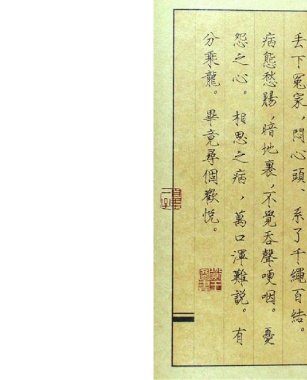 丢下冤家，悶心頭、系了千繩百结。
病態愁腸，暗地裏，不覺吞聲哽咽。憂
怨之心。相思之病，萬口渾難説。有
分乘龍。畢竟尋個歡悦。